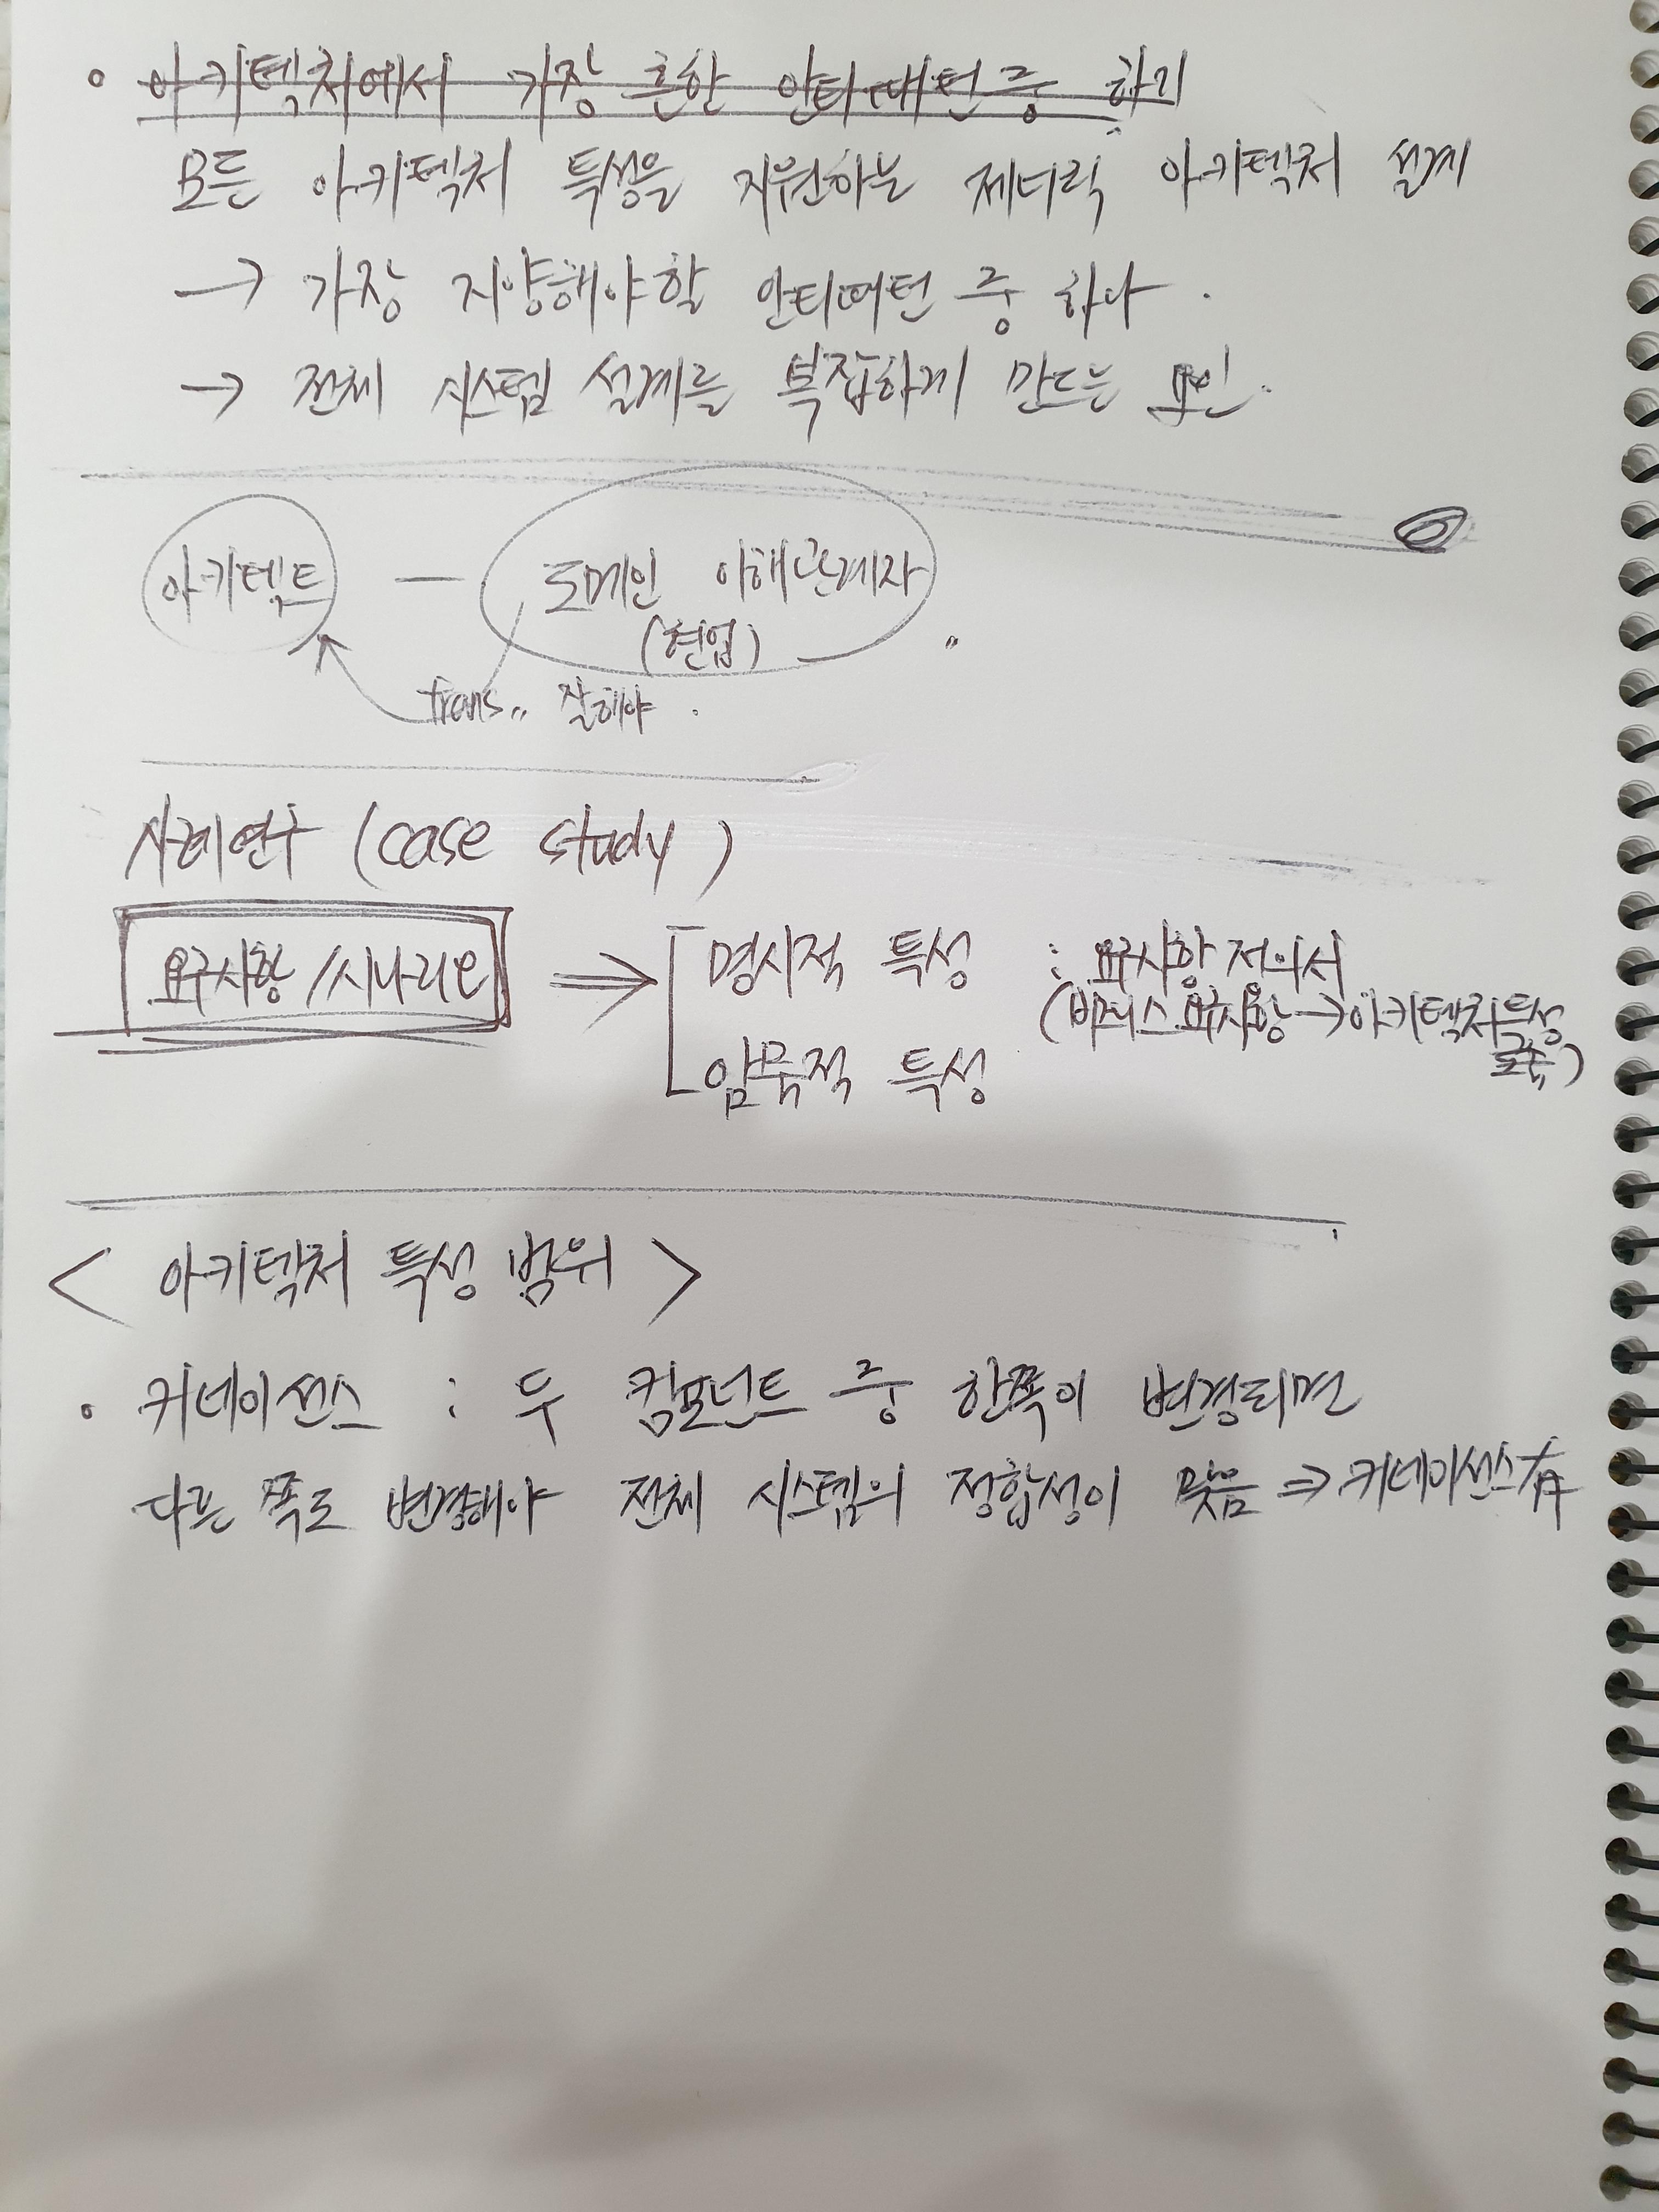 ◦ 아키텍처에서 가장 흔한 안티패턴 중 하기
모든 아키텍처 특성을 지원하는 제너릭 아키텍처 설계
→ 가장 지양해야할 안티패턴 중 하나.
→ 전체 시스템 설계를 복잡하게 만드는 요인.
아키텍트 — 도메인 이해관계자
(현업)
trans.. 잘해야.
사례연구 (case study)
요구사항/시나리오 ⇒ 명시적 특성 : 요구사항 정의서
(비즈니스 요구사항→아키텍처 특성
도출)
암묵적 특성
< 아키텍처 특성 범위 >
• 커네이선스 : 두 컴포넌트 중 한쪽이 변경되면
다른 쪽도 변경해야 전체 시스템의 정합성이 맞음 ⇒ 커네이선스 有